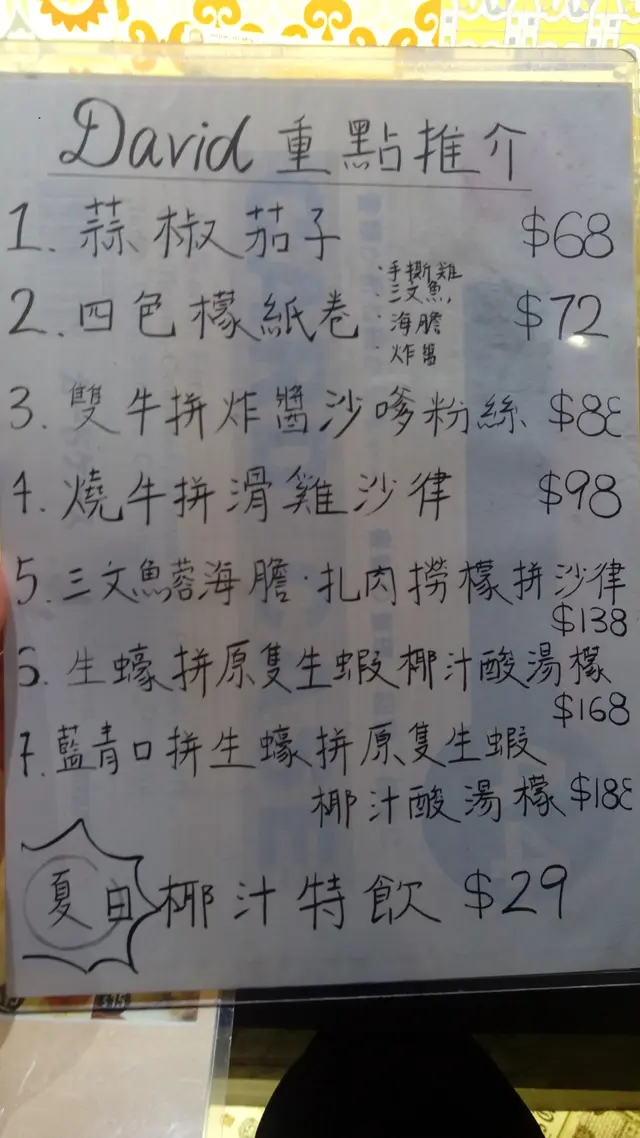 David 重點推介
1. 蒜椒茄子 $68
2. 四色檬紙卷 $72
· 手撕雞
· 三文魚
· 海膽
· 炸醬
3. 雙牛拼炸醬沙嗲粉絲 $88
4. 燒牛拼滑雞沙律 $98
5. 三文魚蓉海膽·扎肉撈檬拼沙律
$138
6. 生蠔拼原隻生蝦椰汁酸湯檬
$168
7. 藍青口拼生蠔拼原隻生蝦
椰汁酸湯檬 $188
夏日椰汁特飲 $29